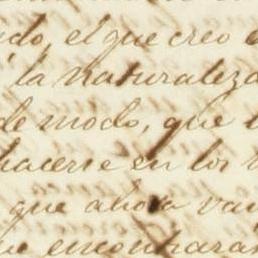 ido, el que creo e
la naturaleza
de modo, que
hacerse en los
que ahora va
que encontrará